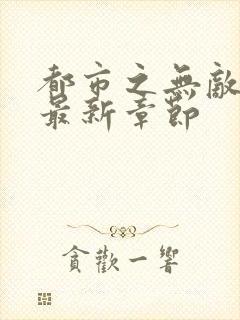 都市之無敵
最新章節
貪歡一響